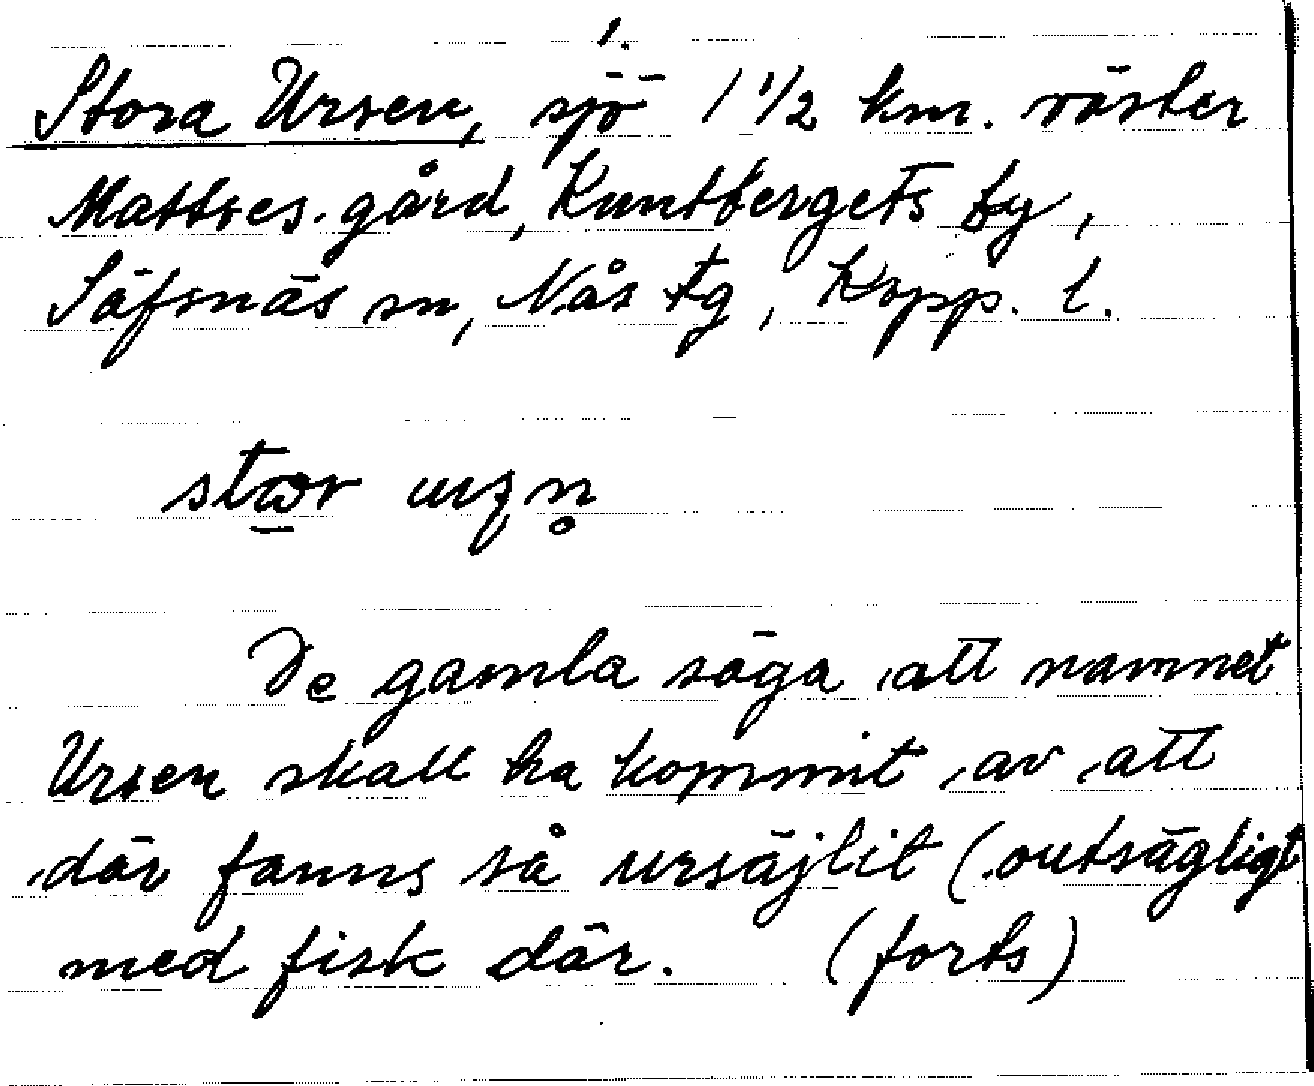 1.
Stora Ursen, sjö 1 1/2 km. väster
Mattses gård, Kuntbergets by,
Säfsnäs sn, Nås tg, Kopp. l.
De gamla säga att namnet
Ursen skall ha kommit av att
där fanns så ursäjlit (outsägligt
med fisk där. (forts)